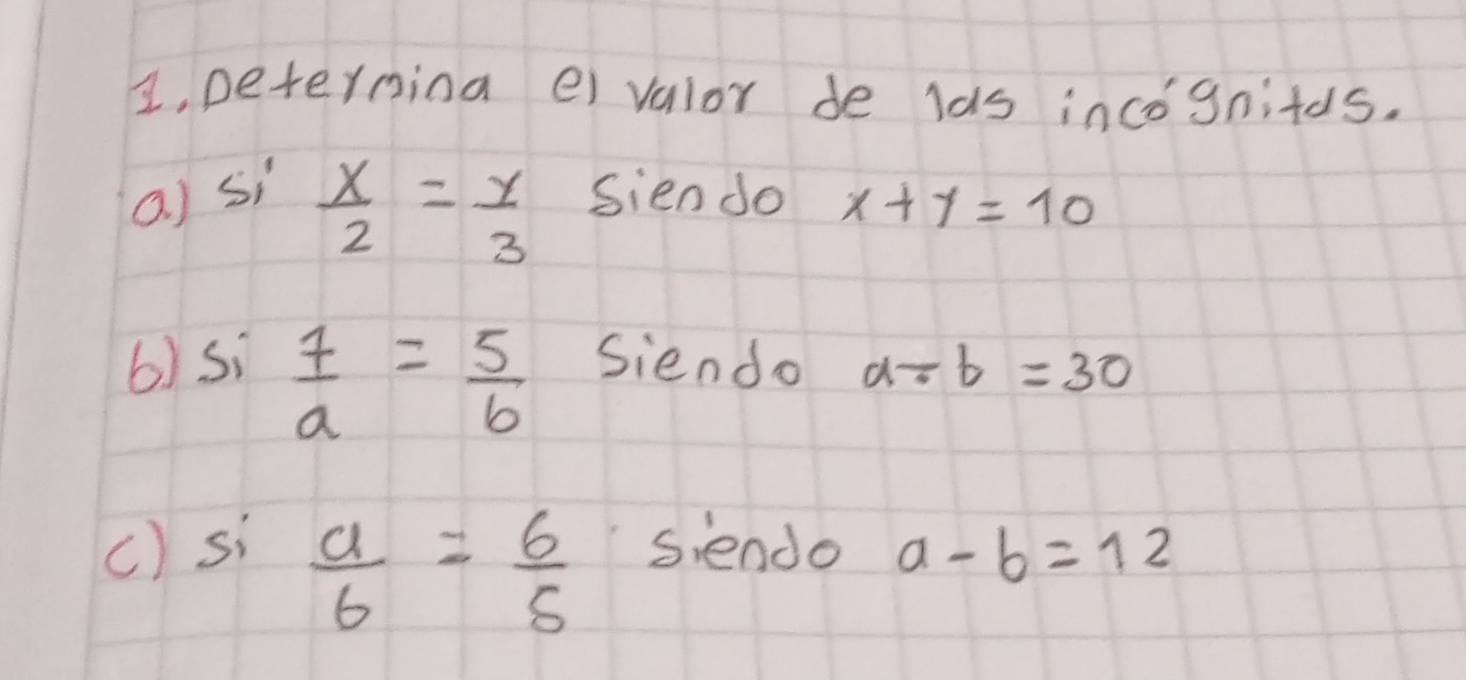 1. Determina el valor de las incógnitas.
a) si x/2 = y/3 siendo x + y = 10
b) si 7/a = 5/b siendo a ÷ b = 30
c) si a/b = 6/5 siendo a - b = 12